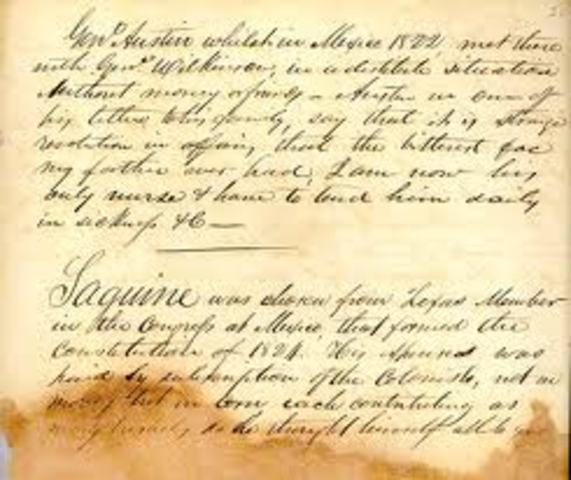 Genl Austin whilst in Mexico 1822, met there
with Genl Wilkinson, in a destitute situation
Without money or friends – Austin in one of
his letters to his family, say that it is strange
revolution in affairs, that the bitterest foe
my father ever had, I am now his
only nurse & have to tend him daily
in sickness &C —
Saguine was chosen from Texas Member
in the Congress at Mexico, that formed the
Constitution of 1824. His expenses was
paid by subscription of the Colonists, not in
money but in Corn each contributing as
many as he thought himself able to